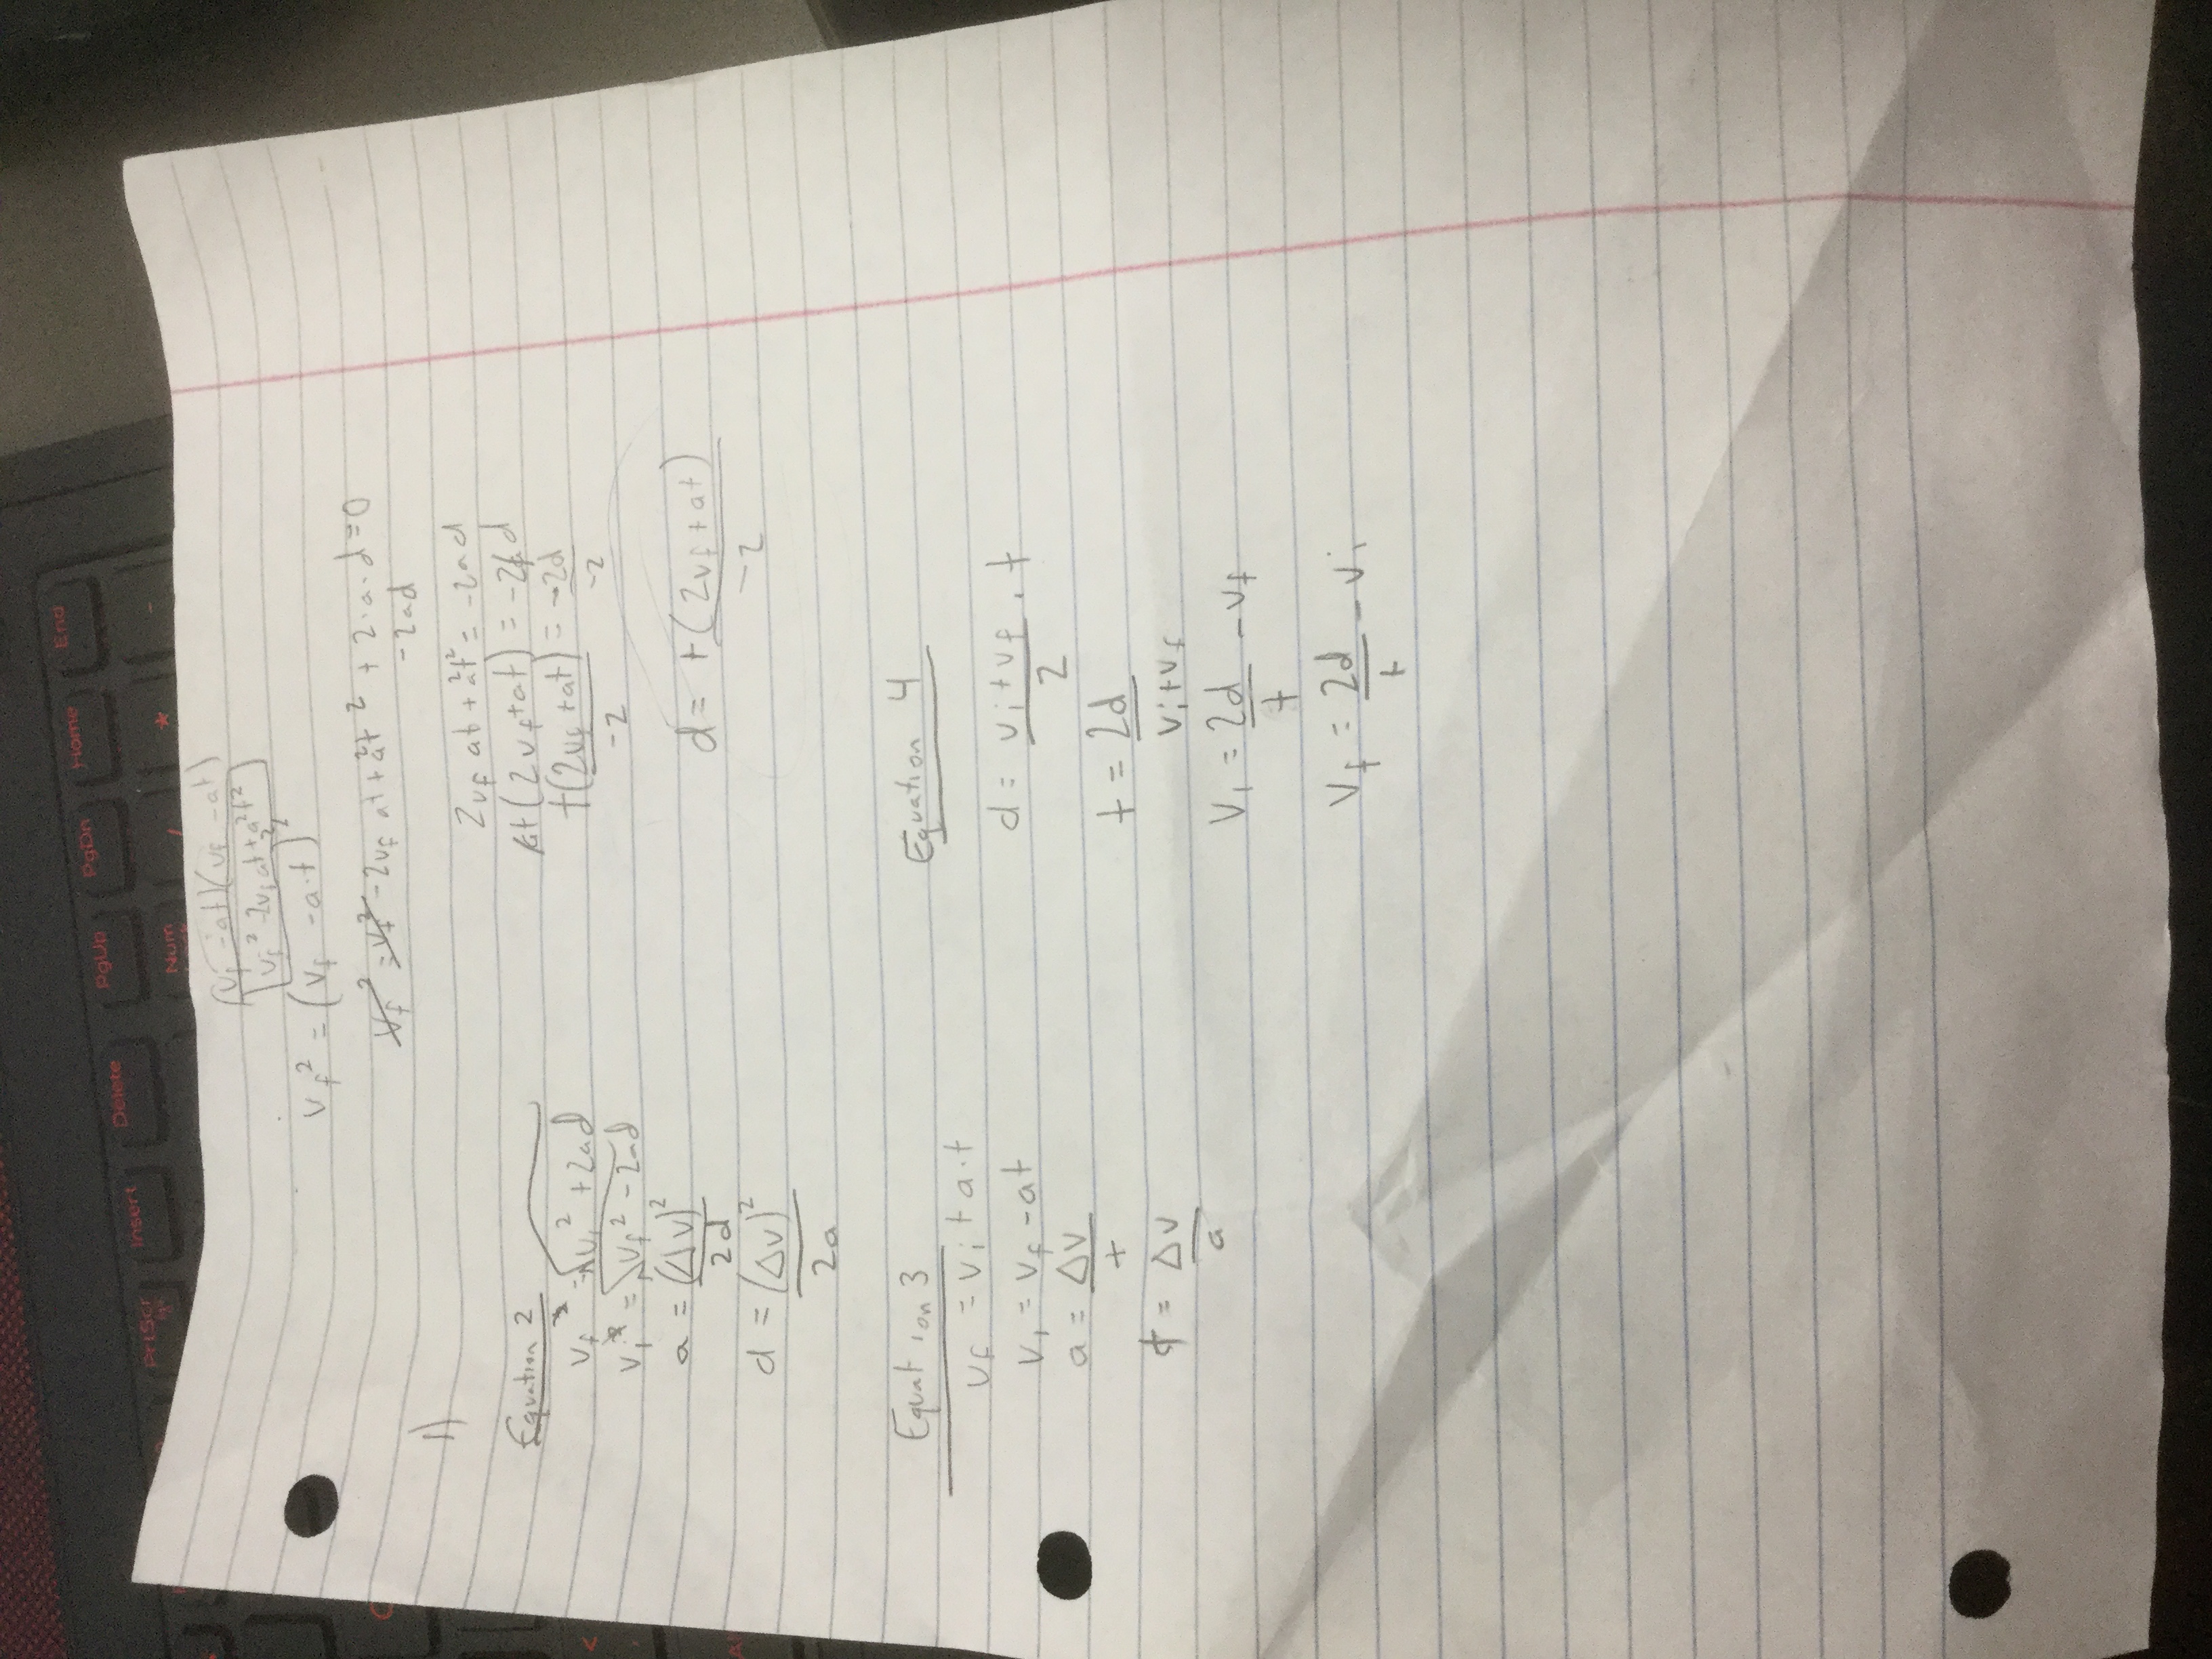 PrtScr Insert Delete PgUp PgDn Home End
Num / * -
(v_f - at)(v_f - at)
v_f² - 2v_f at + a²t²
v_f² = (v_f - a·t)²
v_f² = v_f² - 2v_f at + a²t² + 2·a·d = 0
-2ad
1)
2v_f at + a²t² = -2ad
at(2v_f + at) = -2ad
t(2v_f + at) = -2d
-2 -2
d = t(2v_f + at)
-2
Equation 2
v_f = √v_i² + 2ad
v_i = √v_f² - 2ad
a = (Δv)²
2d
d = (Δv)²
2a
Equation 3
v_f = v_i + a·t
v_i = v_f - at
a = Δv
t
t = Δv
a
Equation 4
d = v_i + v_f · t
2
t = 2d
v_i + v_f
v_i = 2d - v_f
t
v_f = 2d - v_i
t